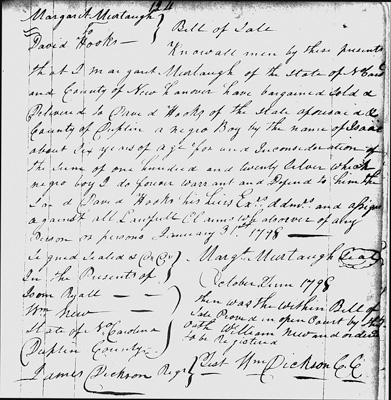 124
Margaret Murtaugh
to
David Hooks
Bill of Sale
Know all men by these presents
that I Margaret Murtaugh of the State of N Caro
and County of New Hanover have bargained Sold &
Delivered to David Hooks of the State aforesaid &
County of Duplin a negro Boy by the name of Isaac
about Six years of age for and Inconsideration of
the Sum of one hundred and twenty Silver which
negro boy I do forever warrant and Defend to him the
Sd David Hooks his heirs Exrs Admrs and assigns
against all Lawfull Claims whatsoever of any
Person or persons January 31st 1798
Signed Sealed & DD
In the Presents of
Isom Ryall
Wm New
Margt Murtaugh Seal
October Term 1798
then was the within Bill of
Sale Proved in open Court by the
oath William New and orderd
to be Registered
Test Wm Dickson CC
State of No Carolina
Duplin County
James Dickson Regr